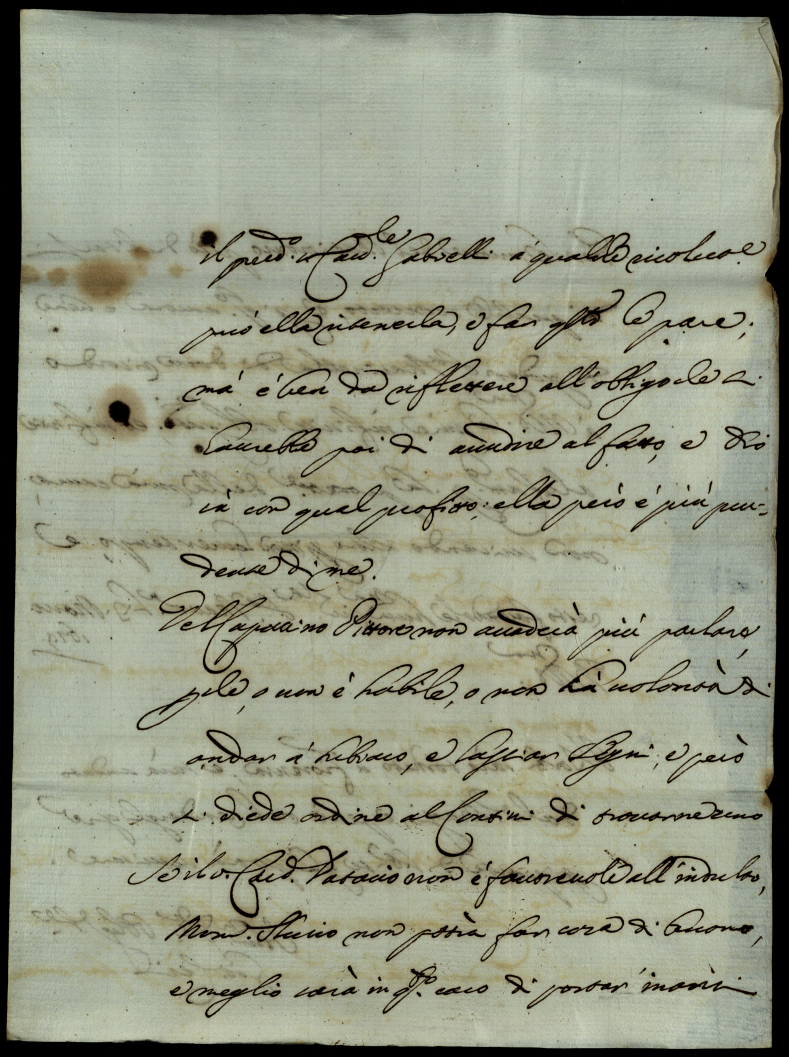 il pred.o s.r Card.le Gabrielli à qualche ricolta.
può ella ritenerla, e far q.to le pare;
má é ben da riflettere all'obligo che si
haurebbe poi di accudire al fatto, e Dio
sà con qual profitto; ella però é piú pru-
dente di me.
Del Capuccino Pittore non accaderà piú parlare,
p.che, o non é habile, o non há volontà di
andar á Subiaco, e lasciar; e però
si diede ordine al Contini di trovarne uno
Se il s.r Card. non é favorevole all'indulto,
Mons. Slusio non potrà far cosa di buono,
e meglio sarà in q.to caso di portar inanzi